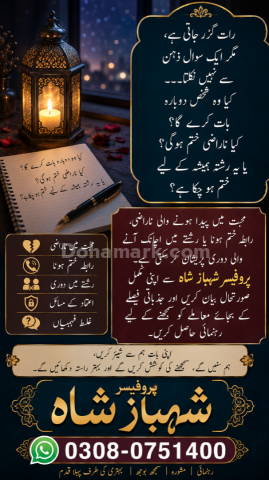 رات گزر جاتی ہے،
مگر ایک سوال ذہن
سے نہیں نکلتا۔۔۔
کیا وہ شخص دوبارہ
بات کرے گا؟
کیا ناراضی ختم ہوگی؟
یا یہ رشتہ ہمیشہ کے لیے
ختم ہو چکا ہے؟
کیا وہ دوبارہ بات کرے گا؟
کیا ناراضی ختم ہوگی؟
یا یہ رشتہ ہمیشہ کے لیے ختم ہو چکا ہے؟
محبت میں پیدا ہونے والی ناراضی،
رابطہ ختم ہونا یا رشتے میں اچانک آنے
والی دوری پریشان
پروفیسر شہباز شاہ سے اپنی مکمل
صورتحال بیان کریں اور جذباتی فیصلے
کے بجائے معاملے کو سمجھنے کے لیے
رہنمائی حاصل کریں۔
محبت میں ناراضی
رابطہ ختم ہونا
رشتے میں دوری
اعتماد کے مسائل
غلط فہمیاں
Dohamark.com
اپنی بات ہم سے شیئر کریں،
ہم سنیں گے، سمجھنے کی کوشش کریں گے اور بہتر راستہ دکھائیں گے۔
پروفیسر
شہباز شاہ
0308-0751400
رہنمائی | مشورہ | سمجھ بوجھ | بہتری کی طرف پہلا قدم